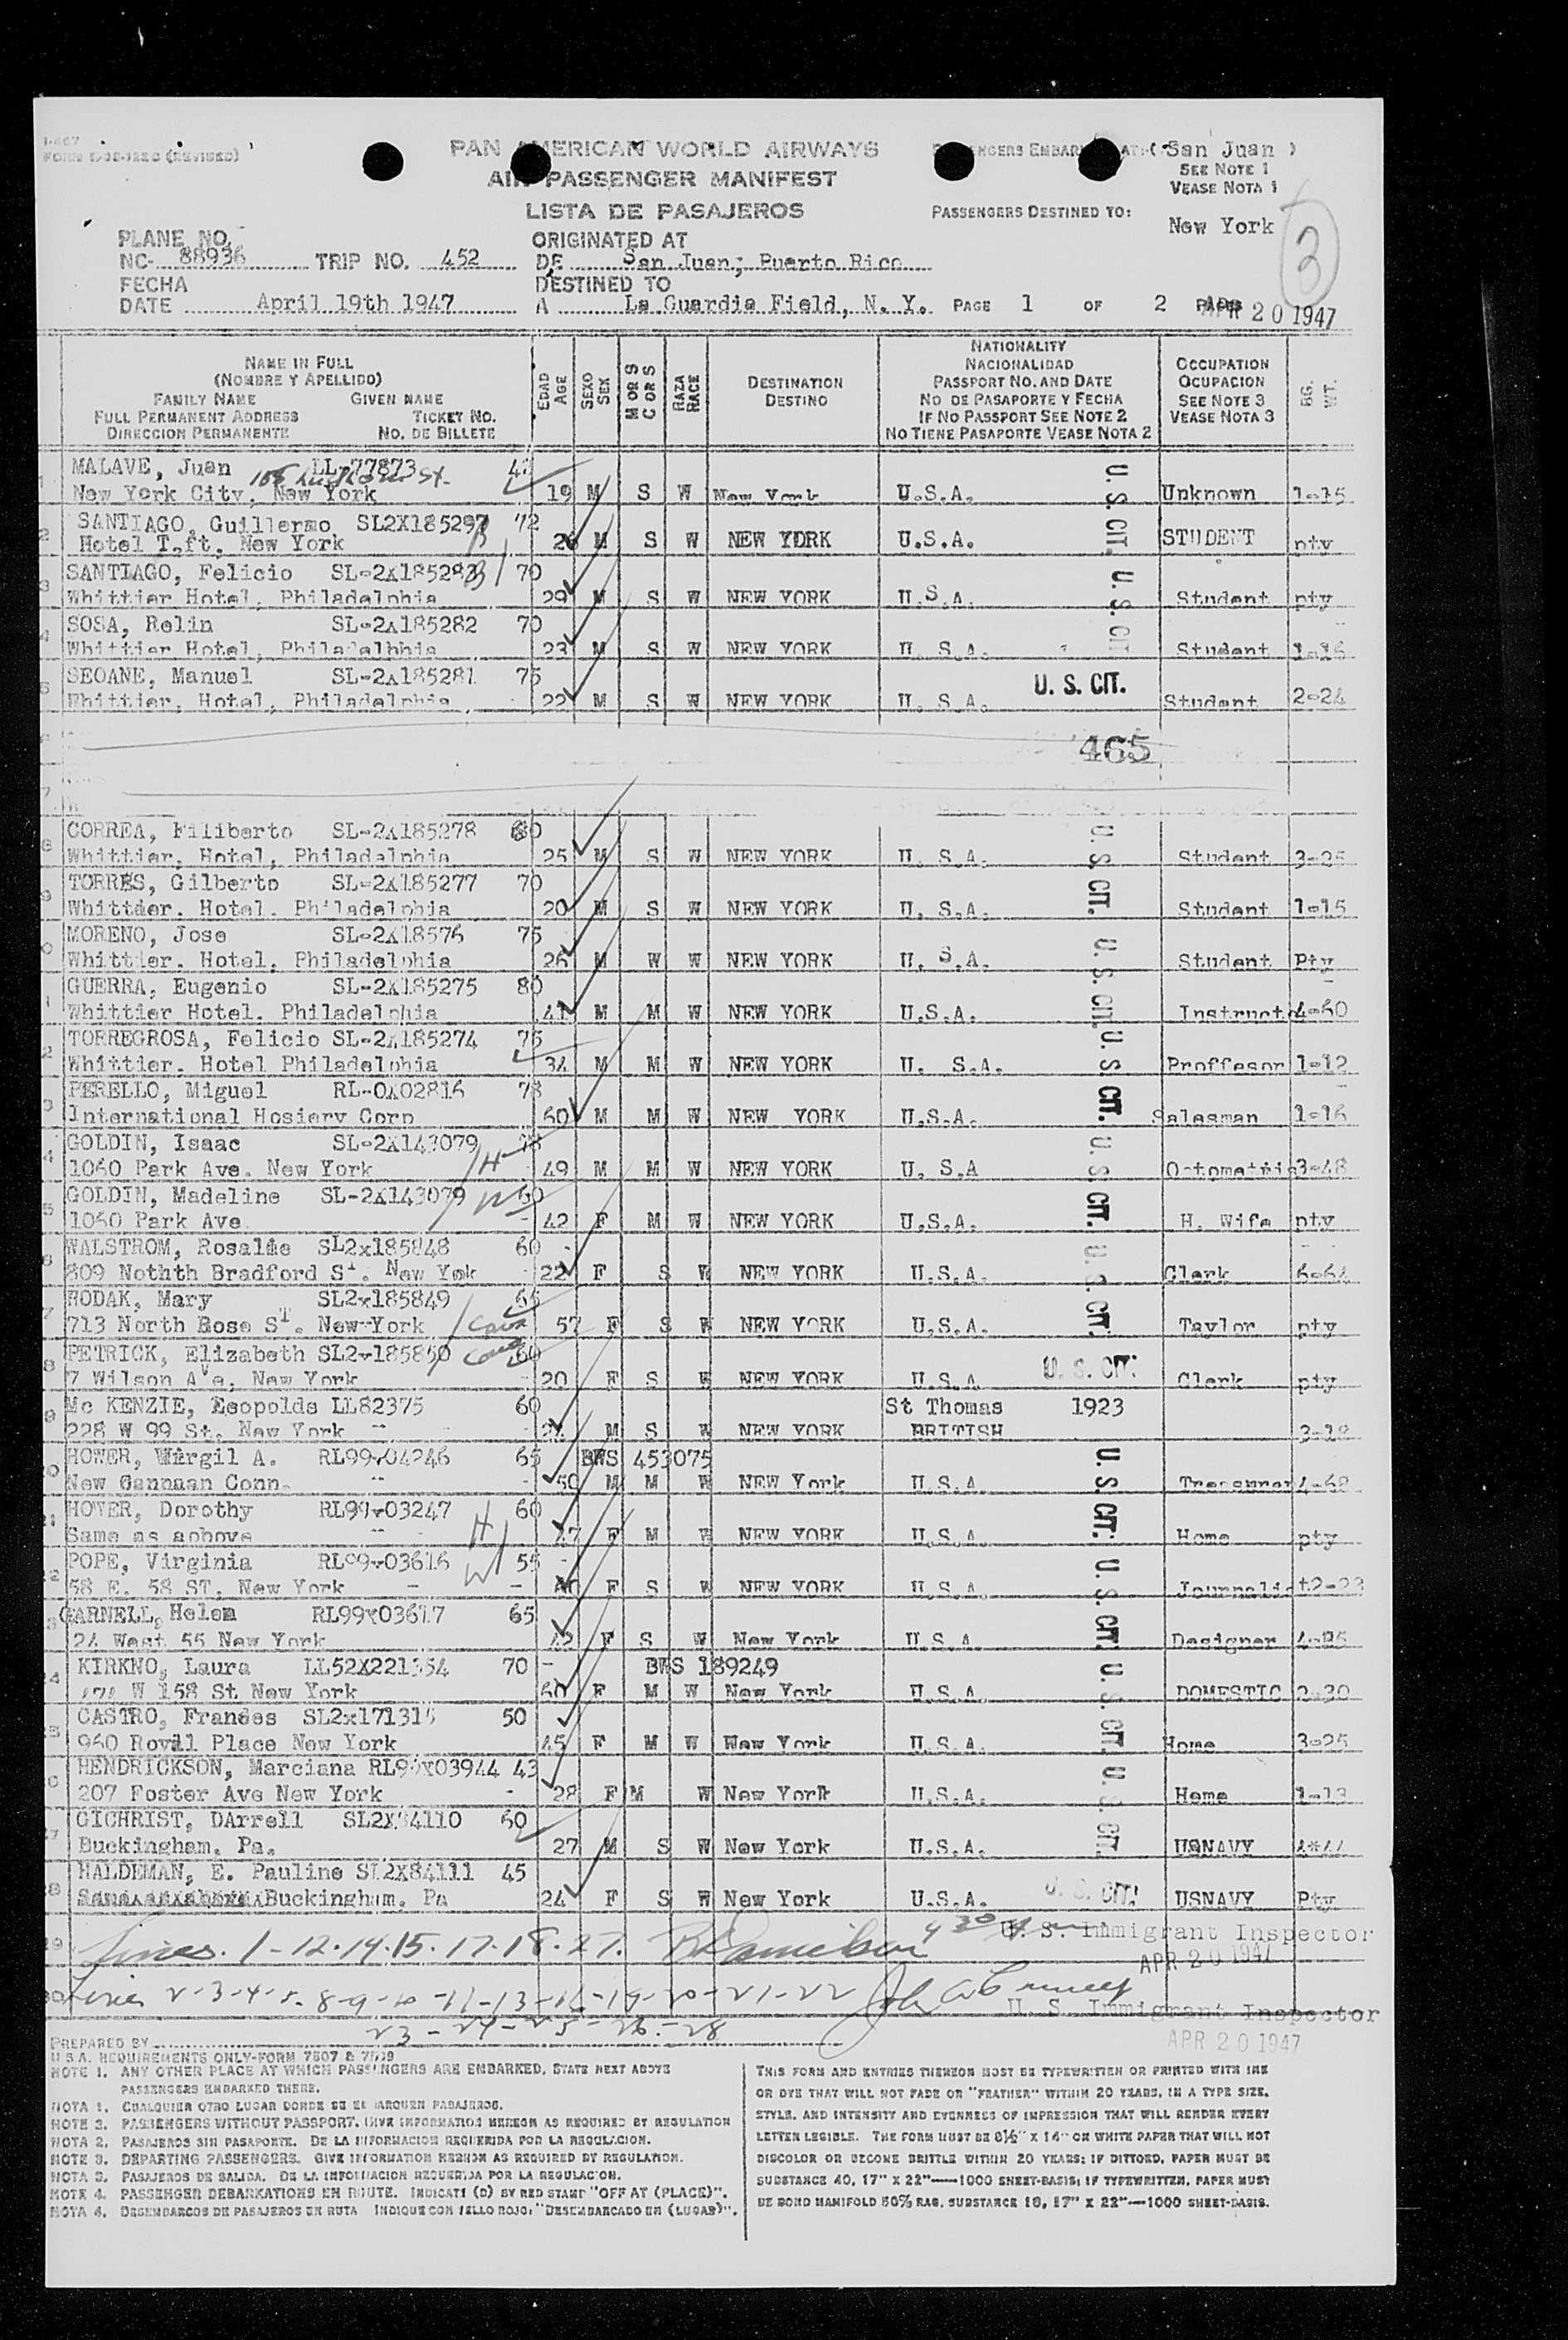 I-467
PAN AMERICAN WORLD AIRWAYS
AIR PASSENGER MANIFEST
LISTA DE PASAJEROS
(San Juan)
SEE NOTE 1
VEASE NOTA 1
PASSENGERS DESTINED TO:
New York
3
PLANE NO.
NC- 88936 TRIP NO. 452
ORIGINATED AT
DE San Juan; Puerto Rico
FECHA
DATE April 19th 1947
DESTINED TO
A La Guardia Field, N. Y. PAGE 1 OF 2
APR 20 1947
NAME IN FULL
(NOMBRE Y APELLIDO)
FAMILY NAME GIVEN NAME
FULL PERMANENT ADDRESS TICKET NO.
DIRECCION PERMANENTE NO. DE BILLETE
EDAD
AGE
SEXO
SEX
M OR S
C OR S
RAZA
RACE
DESTINATION
DESTINO
NATIONALITY
NACIONALIDAD
PASSPORT NO. AND DATE
NO DE PASAPORTE Y FECHA
IF NO PASSPORT SEE NOTE 2
NO TIENE PASAPORTE VEASE NOTA 2
OCCUPATION
OCUPACION
SEE NOTE 3
VEASE NOTA 3
BG.
WT.
MALAVE, Juan LL-77873
New York City, New York 19 M S W New York U.S.A. U. S. CIT. Unknown 1-15
SANTIAGO, Guillermo SL2X185297 72
Hotel Taft, New York 26 M S W NEW YORK U.S.A. STUDENT pty
SANTIAGO, Felicio SL-2X185283 70
Whittier Hotel, Philadelphia 29 M S W NEW YORK U.S.A. U. S. CIT Student pty
SOSA, Relin SL-2X185282 70
Whittier Hotel, Philadelbhia 23 M S W NEW YORK U. S.A. Student 1-16
SEOANE, Manuel SL-2X185281 75
Whittier, Hotel, Philadelphia 22 M S W NEW YORK U. S.A. U. S. CIT. Student 2-24
465
CORREA, Filiberto SL-2X185278 60
Whittier, Hotel, Philadelphia 25 M S W NEW YORK U. S.A. U. S CIT. Student 3-25
TORRES, Gilberto SL-2X185277 70
Whittier. Hotel. Philadelphia 20 M S W NEW YORK U. S.A. Student 1-15
MORENO, Jose SL-2X18576 75
Whittier. Hotel. Philadelphia 26 M W W NEW YORK U. S.A. U. S. CIT. Student Pty
GUERRA, Eugenio SL-2X185275 80
Whittier Hotel. Philadelphia 41 M M W NEW YORK U.S.A. Instructo 4-60
TORREGROSA, Felicio SL-2X185274 75
Whittier. Hotel Philadelphia 34 M M W NEW YORK U. S.A. U. S CIT. Proffesor 1-12
PERELLO, Miguel RL-0X02816 78
International Hosiery Corp 60 M M W NEW YORK U.S.A. Salesman 1-16
GOLDIN, Isaac SL-2X143079
1060 Park Ave. New York 49 M M W NEW YORK U. S.A U. S. CIT. Optometris 3-48
GOLDIN, Madeline SL-2X143079 60
1060 Park Ave 42 F M W NEW YORK U.S.A. H. Wife pty
WALSTROM, Rosalie SL2x185848 60
809 Nothth Bradford St. New Yok 22 F S W NEW YORK U.S.A. U. S. CIT. Clerk 6-64
HODAK, Mary SL2x185849 65
713 North Bose ST. New York 57 F S W NEW YORK U.S.A. Taylor pty
PETRICK, Elizabeth SL2x185850 60
7 Wilson Ave, New York 20 F S W NEW YORK U.S.A U. S. CIT. Clerk pty
Mc KENZIE, Leopolds LL82375 60 St Thomas 1923
228 W 99 St. New York M S W NEW YORK BRITISH 3-18
HOWER, Virgil A. RL99x04246 65 BWS 453075
New Cannaan Conn. 50 M M W NEW York U.S.A U. S. CIT. Treasurer 4-68
HOWER, Dorothy RL99x03247 60
Same as aobove 47 F M W NEW YORK U.S.A. Home pty
POPE, Virginia RL99x03616 55
58 E. 58 ST. New York F S W NEW YORK U.S.A U. S. CIT. Journalist 2-23
CARNELL, Helen RL99x03617 65
24 West 55 New York 42 F S W New York U.S.A. Designer 4-85
KIRKNO, Laura LL52X221354 70 BWS 189249
W 158 St New York 60 F M W New York U.S.A. U. S. CIT. DOMESTIC 2-30
CASTRO, Frances SL2x171315 50
960 Royal Place New York 45 F M W New York U.S.A. Home 3-25
HENDRICKSON, Marciana RL99x03944 43
207 Foster Ave New York 28 F M W New York U.S.A. U. S. CIT. Home 1-13
GICHRIST, DArrell SL2X84110 60
Buckingham. Pa. 27 M S W New York U.S.A. USNAVY
HALDEMAN, E. Pauline SL2X84111 45
Buckingham. Pa 24 F S W New York U.S.A. U. S. CIT. USNAVY Pty
Lines. 1-12.14.15.17.18.27.
U. S. Immigrant Inspector
APR 20 1947
Lines 2-3-4-5-8-9-10-11-13-16-19-20-21-22
U. S. Immigrant Inspector
23-24-25-26-28
APR 20 1947
PREPARED BY
U.S.A. REQUIREMENTS ONLY-FORM 7507 & 7509
NOTE 1. ANY OTHER PLACE AT WHICH PASSENGERS ARE EMBARKED, STATE NEXT ABOVE
PASSENGERS EMBARKED THERE.
NOTA 1. CUALQUIER OTRO LUGAR DONDE SE EMBARQUEN PASAJEROS.
NOTE 2. PASSENGERS WITHOUT PASSPORT. GIVE INFORMATION HEREON AS REQUIRED BY REGULATION
NOTA 2. PASAJEROS SIN PASAPORTE. DE LA INFORMACION REQUERIDA POR LA REGULACION.
NOTE 3. DEPARTING PASSENGERS. GIVE INFORMATION HEREON AS REQUIRED BY REGULATION.
NOTA 3. PASAJEROS DE SALIDA. DE LA INFORMACION REQUERIDA POR LA REGULACION.
NOTE 4. PASSENGER DEBARKATIONS EN ROUTE. INDICATE (D) BY RED STAMP "OFF AT (PLACE)".
NOTA 4. DESEMBARCOS DE PASAJEROS EN RUTA INDIQUE CON SELLO ROJO: "DESEMBARCADO EN (LUGAR)".
THIS FORM AND ENTRIES THEREON MUST BE TYPEWRITTEN OR PRINTED WITH INK
OR DYE THAT WILL NOT FADE OR "FEATHER" WITHIN 20 YEARS, IN A TYPE SIZE,
STYLE, AND INTENSITY AND EVENNESS OF IMPRESSION THAT WILL RENDER EVERY
LETTER LEGIBLE. THE FORM MUST BE 8½" X 14" ON WHITE PAPER THAT WILL NOT
DISCOLOR OR BECOME BRITTLE WITHIN 20 YEARS; IF DITTOED, PAPER MUST BE
SUBSTANCE 40, 17" X 22"—1000 SHEET-BASIS; IF TYPEWRITTEN, PAPER MUST
BE BOND MANIFOLD 50% RAG, SUBSTANCE 18, 17" X 22"—1000 SHEET-BASIS.